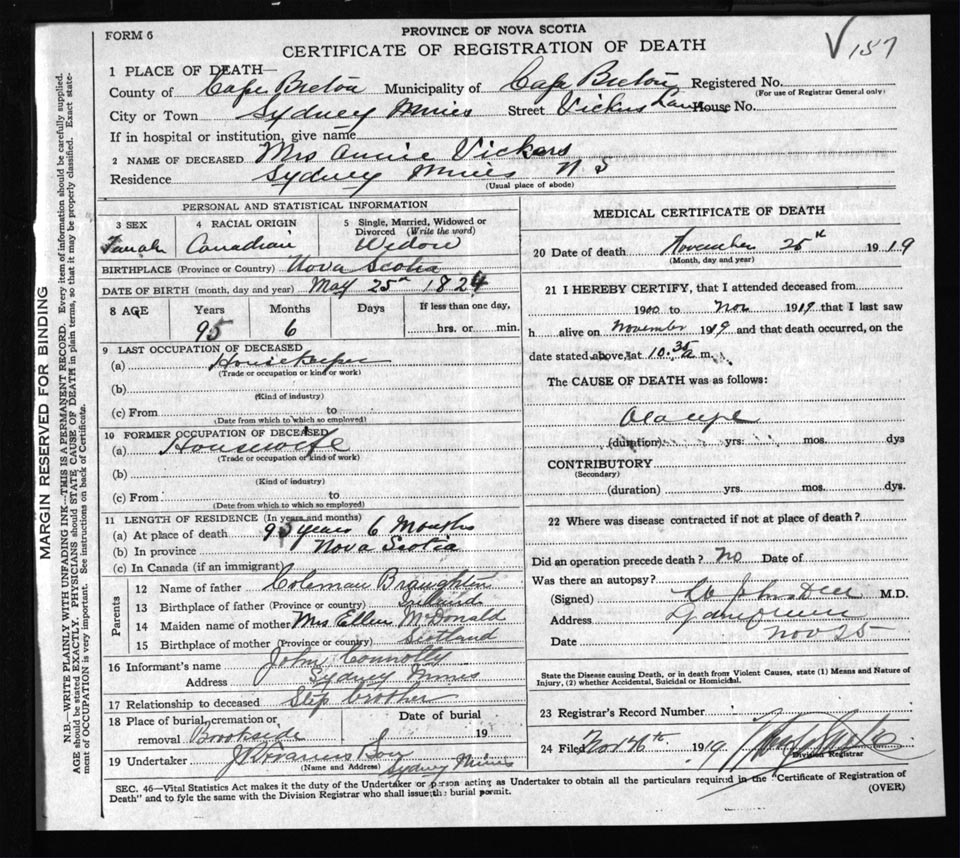 FORM 6
PROVINCE OF NOVA SCOTIA
CERTIFICATE OF REGISTRATION OF DEATH
187
1 PLACE OF DEATH—
County of Cape Breton Municipality of Cape Breton Registered No.
(For use of Registrar General only)
City or Town Sydney Mines Street Vickers Lane House No.
If in hospital or institution, give name
2 NAME OF DECEASED Mrs Annie Vickers
Residence Sydney Mines N S
(Usual place of abode)
PERSONAL AND STATISTICAL INFORMATION
3 SEX 4 RACIAL ORIGIN 5 Single, Married, Widowed or Divorced (Write the word)
Female Canadian Widow
BIRTHPLACE (Province or Country) Nova Scotia
DATE OF BIRTH (month, day and year) May 25th 1824
8 AGE Years Months Days If less than one day,
95 6 hrs. or min.
9 LAST OCCUPATION OF DECEASED
(a) Housekeeper
(Trade or occupation or kind of work)
(b)
(Kind of industry)
(c) From to
(Date from which to which so employed)
10 FORMER OCCUPATION OF DECEASED
(a) Housewife
(Trade or occupation or kind of work)
(b)
(Kind of industry)
(c) From to
(Date from which to which so employed)
11 LENGTH OF RESIDENCE (In years and months)
(a) At place of death 95 years 6 Months
(b) In province Nova Scotia
(c) In Canada (if an immigrant)
Parents
12 Name of father Coleman
13 Birthplace of father (Province or country)
14 Maiden name of mother Mrs Ellen McDonald
15 Birthplace of mother (Province or country) Scotland
16 Informant's name John Connolly
Address Sydney Mines
17 Relationship to deceased Step brother
18 Place of burial, cremation or removal Brookside
Date of burial 19
19 Undertaker Son
(Name and Address) Sydney Mines
MEDICAL CERTIFICATE OF DEATH
20 Date of death November 25th 1919
(Month, day and year)
21 I HEREBY CERTIFY, that I attended deceased from
19 to Nov 1919 that I last saw
h alive on November 1919 and that death occurred, on the
date stated above, at 10.30 m.
The CAUSE OF DEATH was as follows:
Old age
(duration) yrs. mos. dys
CONTRIBUTORY
(Secondary)
(duration) yrs. mos. dys.
22 Where was disease contracted if not at place of death?
Did an operation precede death? No Date of
Was there an autopsy?
(Signed) M.D.
Address
Date Nov 25
State the Disease causing Death, or in death from Violent Causes, state (1) Means and Nature of
Injury, (2) whether Accidental, Suicidal or Homicidal.
23 Registrar's Record Number
24 Filed Nov 1919
Division Registrar
SEC. 46—Vital Statistics Act makes it the duty of the Undertaker or person acting as Undertaker to obtain all the particulars required in the "Certificate of Registration of
Death" and to fyle the same with the Division Registrar who shall issue the burial permit.
(OVER)
MARGIN RESERVED FOR BINDING
N.B.—WRITE PLAINLY WITH UNFADING INK—THIS IS A PERMANENT RECORD. Every item of information should be carefully supplied.
AGE should be stated EXACTLY. PHYSICIANS should STATE CAUSE OF DEATH in plain terms, so that it may be properly classified. Exact state-
ment of OCCUPATION is very important. See instructions on back of Certificate.